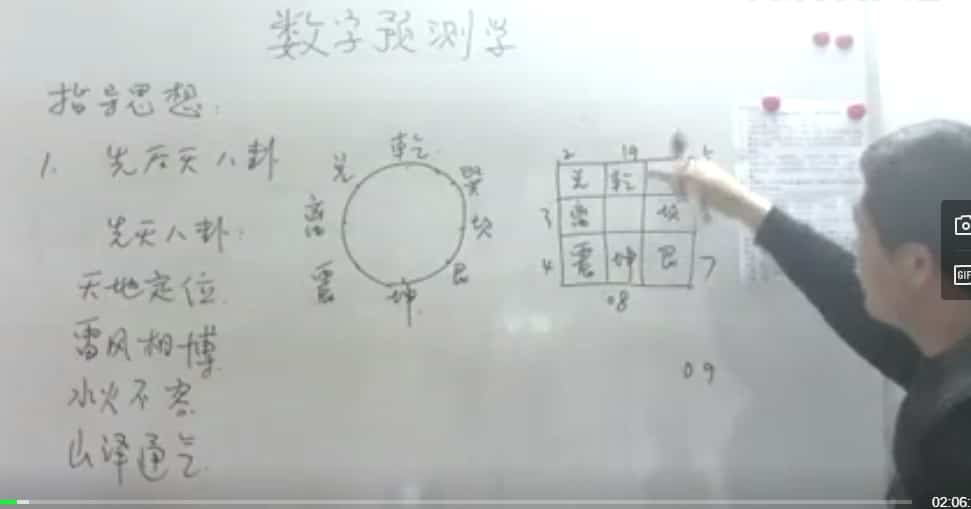 数字预测学
指导思想:
1. 先后天八卦
先天八卦:
天地定位
雷风相博
水火不容
山泽通气
乾
兑 巽
离 坎
震 艮
坤
2 19
兑 乾
3 离 坎
4 震 坤 艮 7
08
09
02:06:
GIF